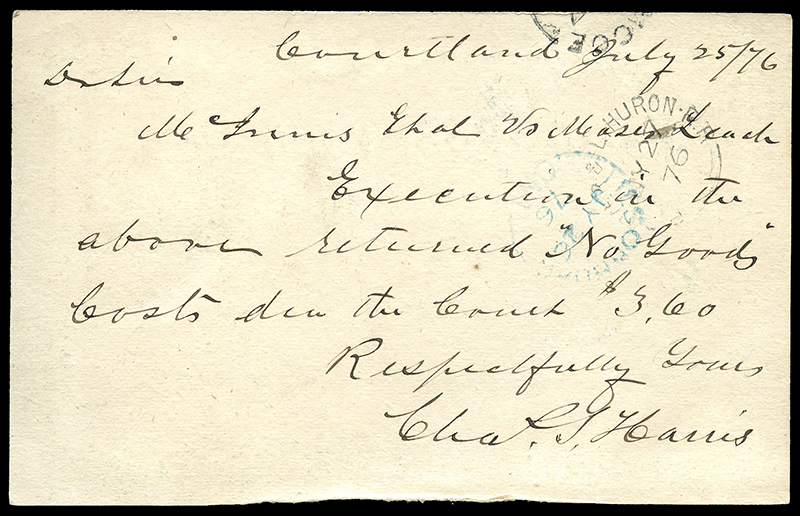 Courtland July 25/76
Dr Sir
McInnis Et al Vs Moses Leach
Execution in the
above returned "No Goods"
Costs due the Court $3.60
Respectfully Yours
Chas. S. Harris
L. HURON. R.R
27
76